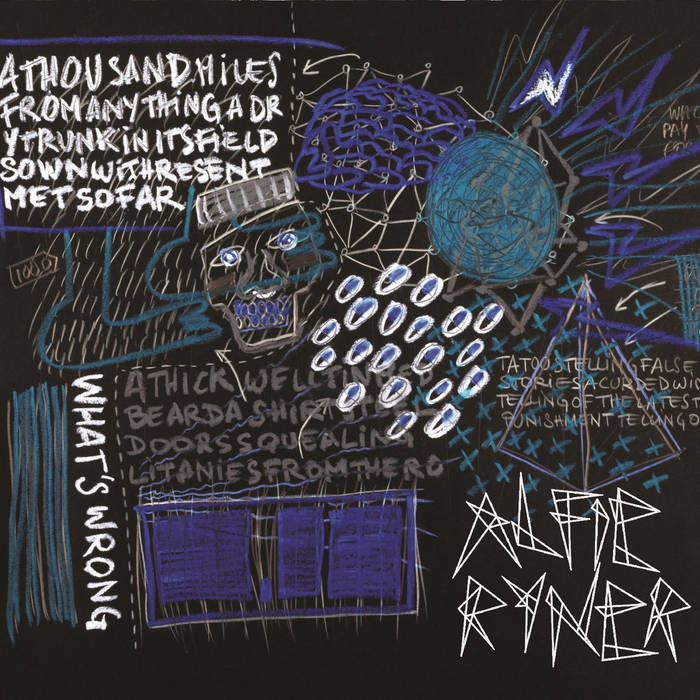 ATHOUSANDMILES
FROMANYTHINGADR
YTRUNKINITSFIELD
SOWNWITHRESENT
METSOFAR
PAY
1000
WHAT'S WRONG
ATHICKWELLTINNED
BEARDASHIRT
DOORSSQUEALING
LITANIESFROMTHERO
TATOOSTELLINGFALSE
STORIESACURDEDWI
TELLINGOFTHELATEST
PUNISHMENTTELLINGO
ALFIE
RYNER